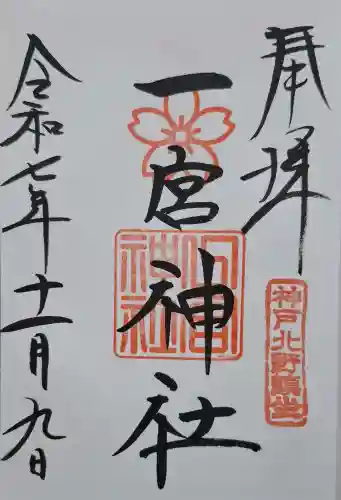 奉拝
神戸北野鎮坐
一宮神社
令和七年十一月九日